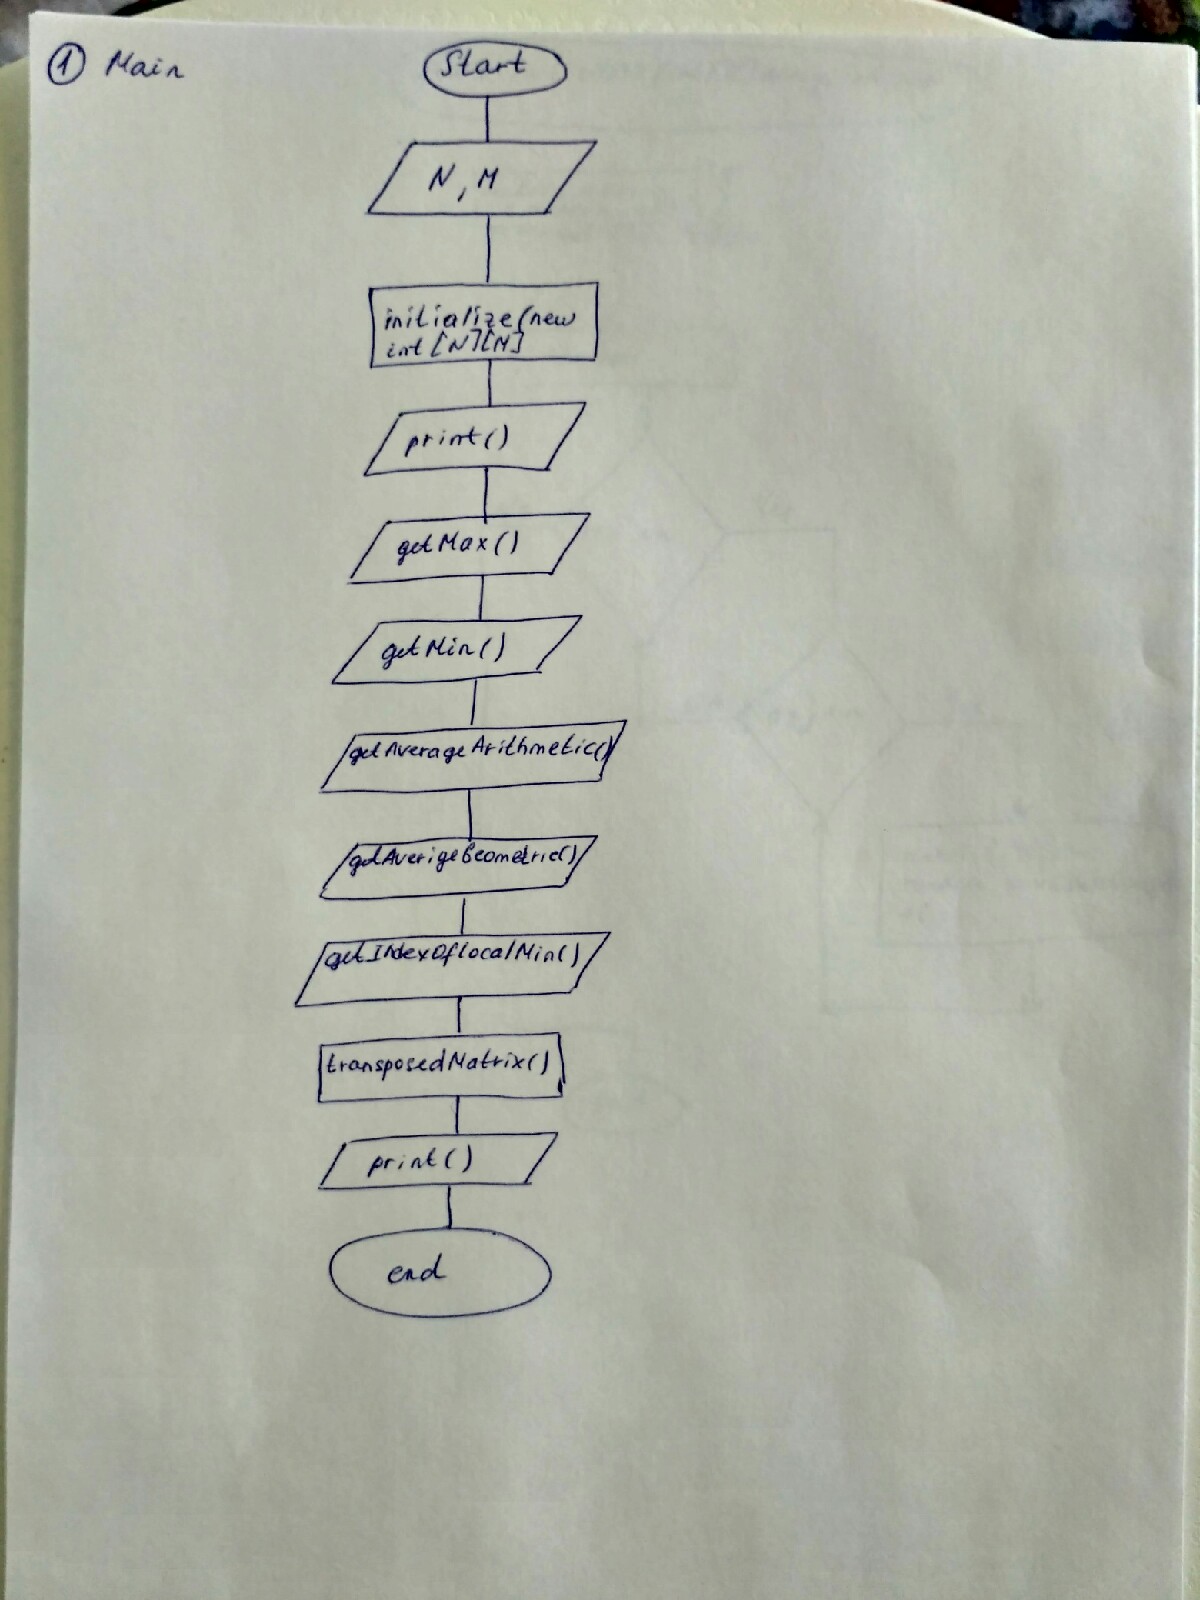 ① Main
Start
N, M
initialize(new
int[N][M]
print()
getMax()
getMin()
getAverageArithmetic()
getAverigeGeometric()
getIndexOflocalMin()
transposedMatrix()
print()
end